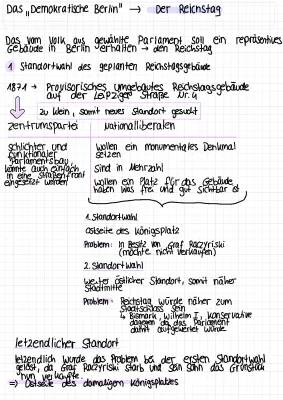 Das „Demokratische Berlin" → Der Reichstag
Das vom Volk aus gewählte Parlament soll ein repräsentives
Gebäude in Berlin erhalten → den Reichstag
1 Standortwahl des geplanten Reichstagsgebäude
1871 → Provisorisches umgebautes Reichstagsgebäude
auf der Leipziger Straße Nr. 4
↳ zu klein, somit neues Standort gesucht
Zentrumspartei
Nationalliberalen
schlichter und
funktionaler
Parlamentsbau
könnte auch einfach
in eine Straßenfront
eingesetzt werden
wollen ein monumentales Denkmal
setzen
sind in Mehrzahl
wollen ein Platz für das Gebäude,
haben was frei und gut sichtbar ist
1. Standortwahl
Ostseite des Königsplatz
Problem: In Besitz von Graf Raczyński
(möchte nicht verkaufen)
2. Standortwahl
weiter östlicher Standort, somit näher
Stadtmitte
Problem: Reichstag würde näher zum
Stadtschloss sein
↳ Bismarck, Wilhelm I, Konservative
dagegen da das Parlament
damit aufgewertet würde
letzendlicher Standort
letzendlich wurde das Problem bei der ersten Standortwahl
gelöst, da Graf Raczyński starb und sein Sohn das Grundstück
nun verkaufte.
⇒ Ostseite des damaligen Königsplatzes